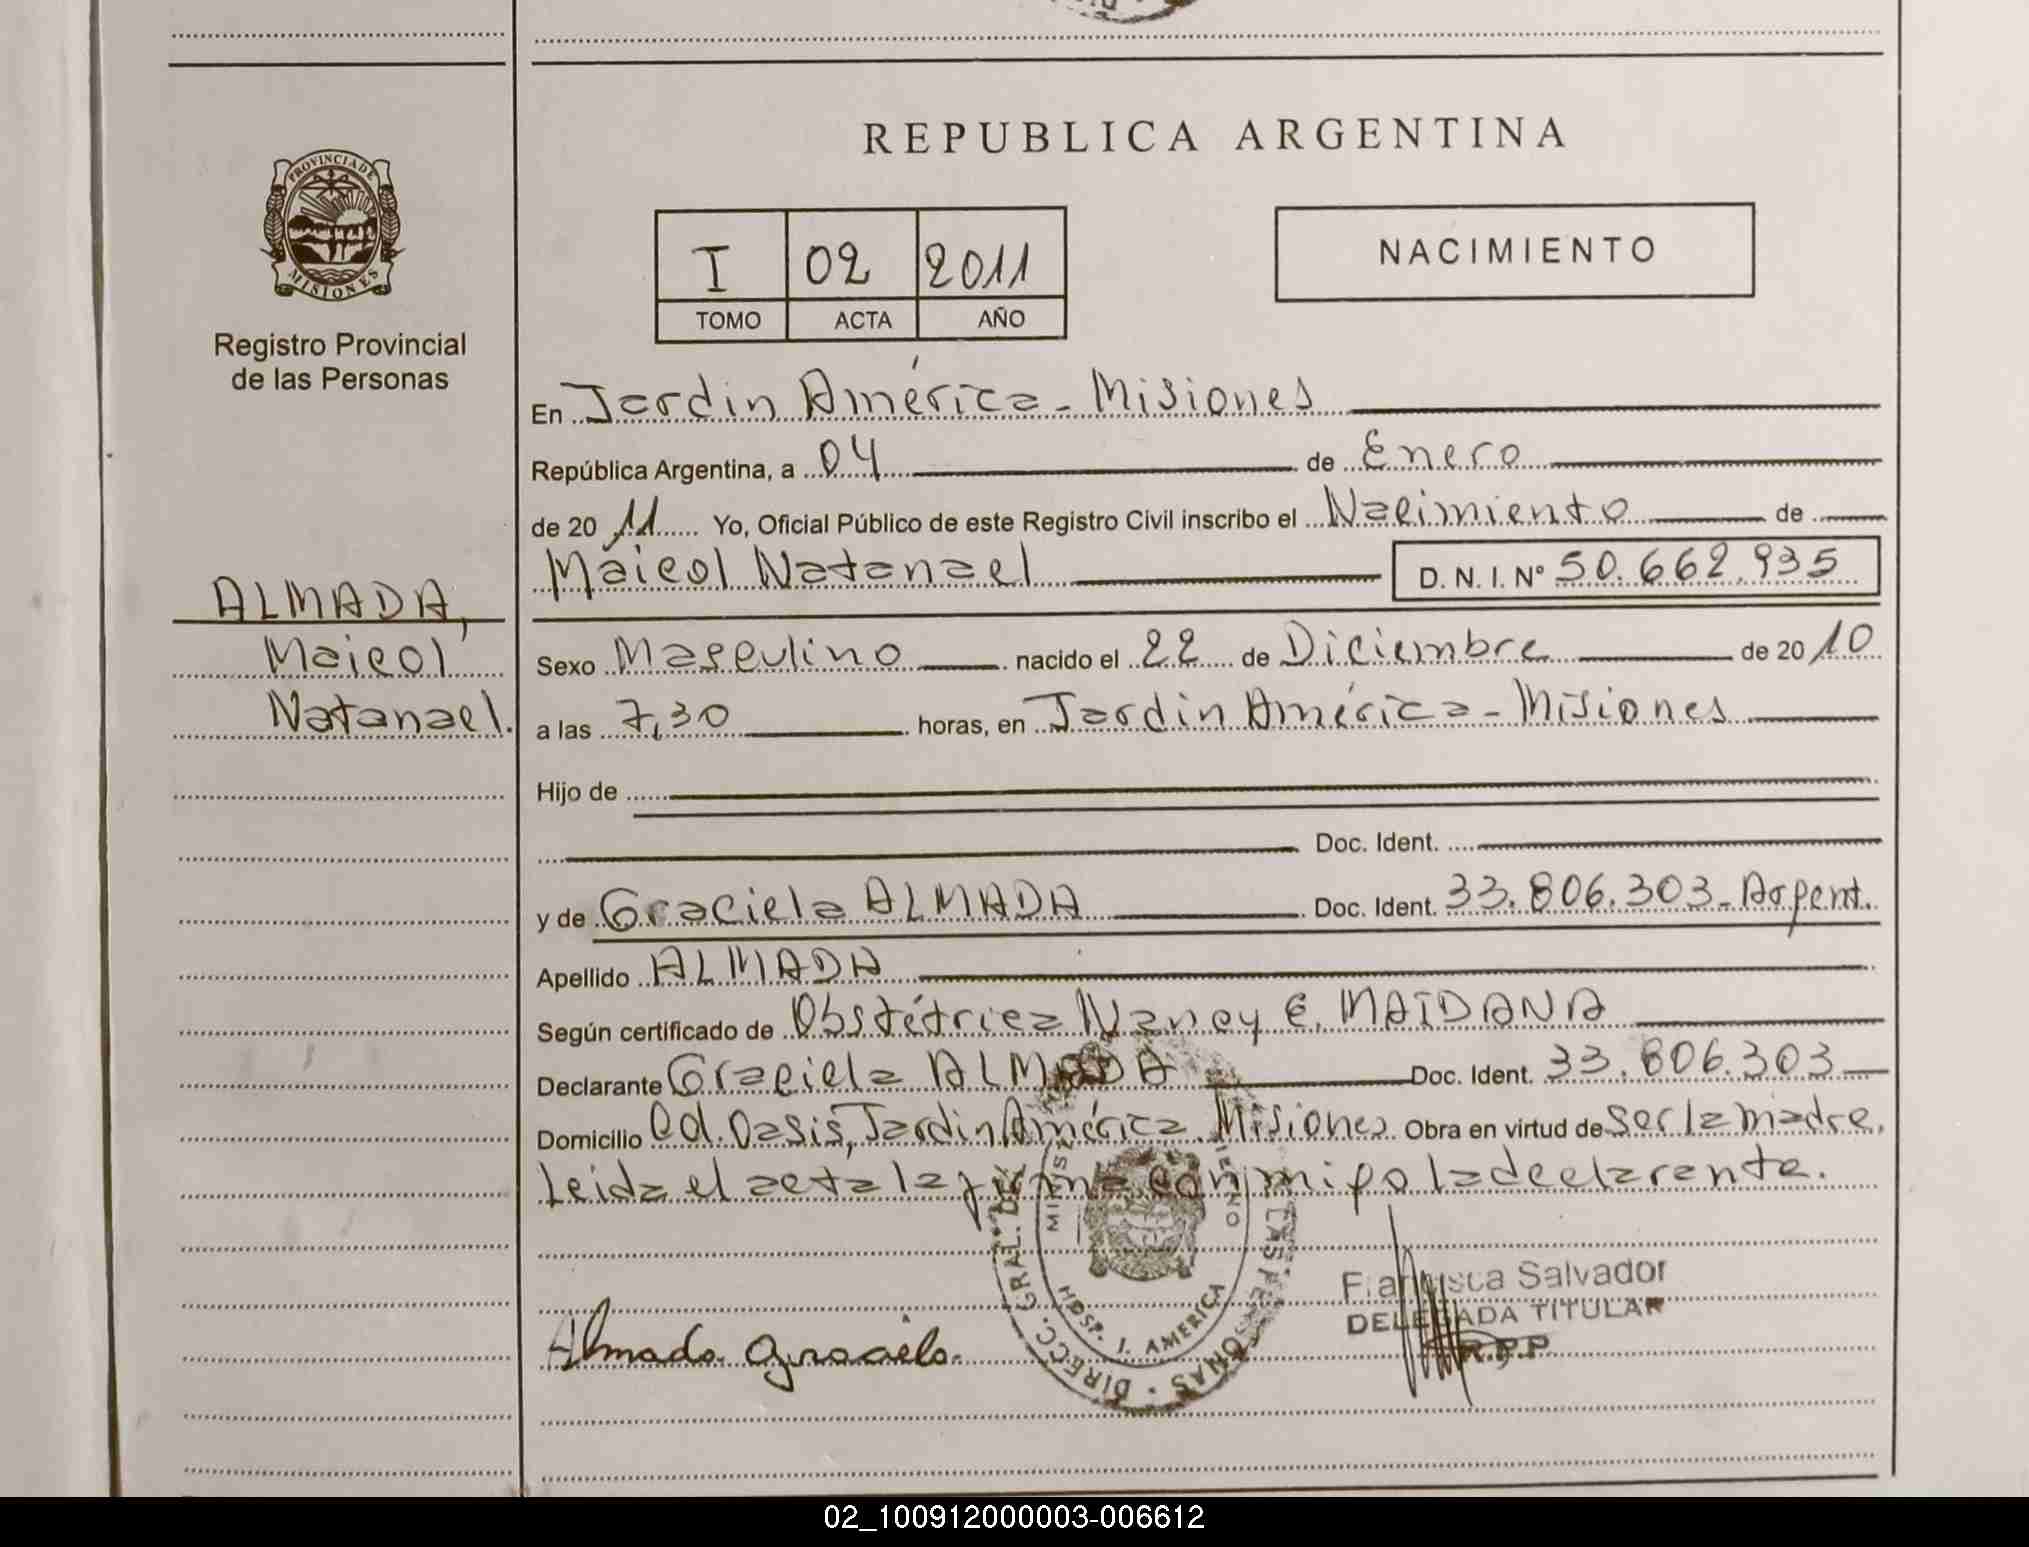 REPUBLICA ARGENTINA
PROVINCIA DE MISIONES
Registro Provincial
de las Personas
I 02 2011
TOMO ACTA AÑO
NACIMIENTO
En Jardin América - Misiones
República Argentina, a 04 de Enero
de 20 11 Yo, Oficial Público de este Registro Civil inscribo el Nacimiento de
Maicol Natanael D. N. I. Nº 50.662.935
ALMADA,
Maicol
Natanael.
Sexo Masculino nacido el 22 de Diciembre de 20 10
a las 7,30 horas, en Jardin América - Misiones
Hijo de
Doc. Ident.
y de Graciela ALMADA Doc. Ident. 33.806.303 - Argent.
Apellido ALMADA
Según certificado de Obstétrica Nancy E. MAIDANA
Declarante Graciela ALMADA Doc. Ident. 33.806.303
Domicilio Cd. Oasis, Jardin América. Misiones Obra en virtud de ser la madre.
Leida el acta la firma con migo la declarante.
Almada Graciela.
DIRECC. GRAL. DE LAS PERSONAS
HOSP. J. AMERICA
Francisca Salvador
DELEGADA TITULAR
R.P.P
02_100912000003-006612